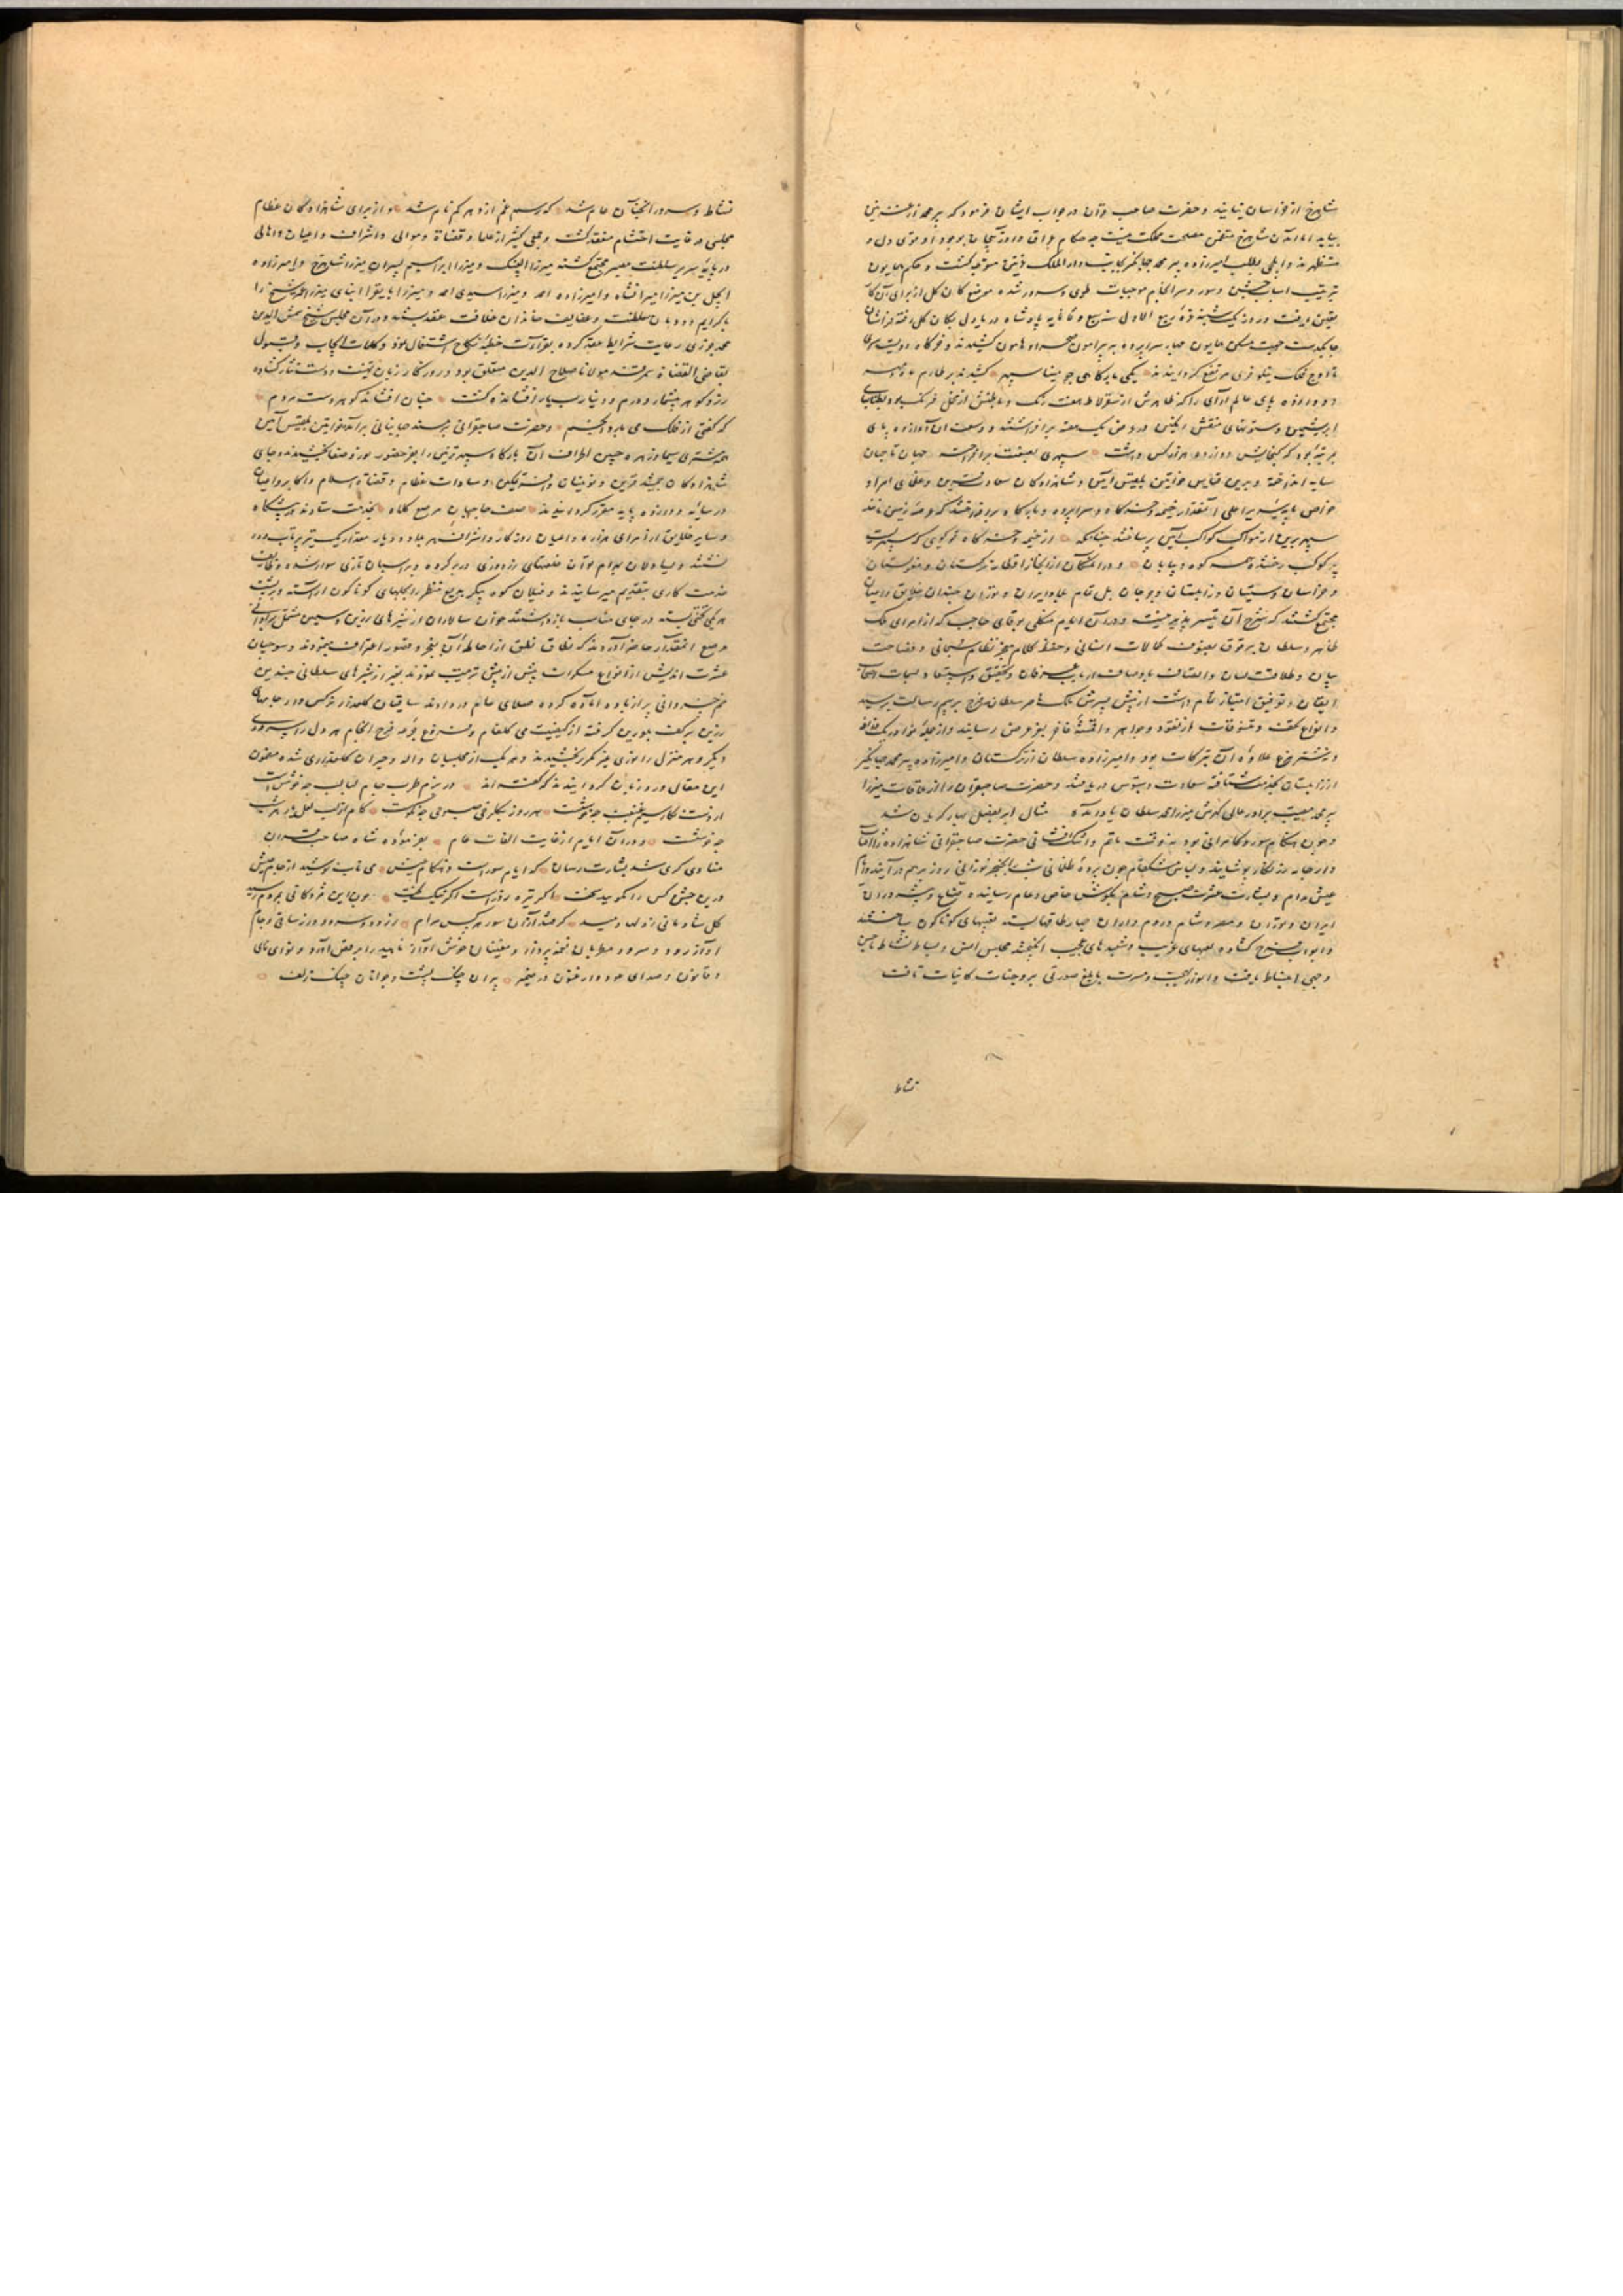 شاهرخ از خراسان نیایند و حضرت صاحب قران در جواب ایشان فرمود که پیر محمد از غزنین
بیاید اما آمدن شاهرخ متضمن مصلحت مملکت نیست چه حکام عراق و آذربیجان بوجود او قوی دل و
مستظهرند و ایلچی بطلب امیرزاده پیر محمد جهانگیر بجانب دار الملک غزنین متوجه گشت و حکم همایون
بترتیب اسباب جشن و سور و سرانجام موجبات طوی و سرور شده موضع کان کل از برای آن کار
تعین یافت و روز یکشنبه غره ربیع الاول پادشاه دریا دل بکان کل رفته فراشان
چابکدست جهت مسکن همایون چهار سراپرده به پیرامون صحرا و هامون کشیدند و خرگاه دویست سری
تا اوج فلک نیلوفری مرتفع گردانیدند یکی بارگاهی چو مینا سپهر کشیدند بر طارم ماه و مهر
و دوازده پای عالم آرای را که ظاهرش از سقرلاط هفت رنگ و باطنش از مخمل فرنگ بود بطنابهای
ابریشمین و ستونهای منقش رنگین در عرض یک هفته برافراشتند و وسعت آن دوازده پای
بمرتبه بود که گنجایش دوازده هزار کس داشت سپهری بصنعت برافراخته جهان تا جهان
سایه انداخته و برین قیاس خواتین بلقیس آیین و شاهزادگان سعادت قرین و عظمای امراء و
خواص پایه سریر اعلی آنقدار خیمه و خرگاه و سراپرده و بارگاه برافراختند که عرصه زمین مانند
سپهر برین از ثواقب کواکب آیین یافت چنانکه از خیمه و خرگاه تو گویی که سپهریست
پر کوکب رخشنده همه کوه و بیابان و در آن مکان از اقطار ترکستان و مغولستان
و خراسان و سیستان و زابلستان و جرجان بل تمام بلاد ایران و توران چندان خلایق و اعیان
مجتمع گشتند که شرح آن تیسیر پذیر نیست و در آن ایام منکلی بوقای حاجب که از امرای ملک
ظاهر و سلطان برقوق بصنوف کمالات انسانی و حفظ کلام معجز نظام سبحانی و فصاحت
بیان و طلاقت لسان و اتصاف باوصاف ارباب عرفان و تحقیق و سمات اصحاب
ایقان و توفیق امتیاز تمام داشت از پیش پسرش ملک ناصر سلطان فرج برسم رسالت برسید
و انواع تحف و تنسوقات از نقود و جواهر و اقمشه فاخر بعز عرض رسانید و از جمله نوادر یک زرافه
و نه شتر مرغ علاوه آن تبرکات بود و امیرزاده سلطان از ترکستان و امیرزاده پیر محمد جهانگیر
از زابلستان بخدمت شتافته سعادت دستبوس دریافتند و حضرت صاحبقران را از ملاقات میرزا
پیر محمد مصیبت برادر عالی گهرش میرزا محمد سلطان یاد آمد مثال ابر بفصل بهار گریان شد
و چون هنگام سور و کامرانی بود نه وقت ماتم و اشک افشانی حضرت صاحبقرانی شاهزاده را
و ارجامه زرنگار پوشانید و لباس مشکفام چون پرده ظلمانی شب بخنجر نورانی روز برهم درآیند و جام
عیش مدام و بشارت عشرت صبح و شام بگوش خاص و عام رسانیده صناع و پیشه وران
ایران و توران و مصر و شام و روم چهار طاقها بسته تعبیهای گوناگون ساختند
و ابواب فرح گشاده لعبهای غریب و شیوه های عجیب انگیختند مجلس انس و بساط نشاط تزیین
و جمعی انبساط یافت و انوار بهجت و مسرت بابلغ صورتی بر وجنات کاینات تافت
نشاط
نشاط و سرور آنچنان عام شد که رسم غم از دهر کم نام شد و از برای شاهزادگان عظام
مجلسی در غایت احتشام منعقد گشت و جمعی کثیر از علما و قضاة و موالی و اشراف و اعیان و اهالی
در پایه سریر سلطنت مصیر مجتمع گشته میرزا الغبیک و میرزا ابراهیم پسران میرزا شاهرخ و امیرزاده
ایجل بن میرزا میرانشاه و امیرزاده احمد و میرزا سیدی احمد و میرزا بایقرا ابنای میرزا عمر شیخ را
با کرایم دودمان سلطنت و عفایف خاندان خلافت عقد بستند و در آن مجلس شیخ شمس الدین
محمد جزری رعایت شرایط عقد کرده بقراءت خطبه نکاح اشتغال نمود و کلمات ایجاب و قبول
بقاضی القضاة سمرقند مولانا صلاح الدین متعلق بود و روزگار زبان تهنیت و دست نثار گشاده
زر و گوهر بیشمار و درم و دینار بسیار افشانده گشت چنان افشاند گوهر دست مردم
که گفتی از فلک می بارد انجم و حضرت صاحبقرانی بر مسند جهانبانی برآمد و خواتین بلقیس آیین
مشتری سیما و زهره جبین اطراف آن بارگاه سپهر تزیین را بعز حضور نور و صفا بخشیدند و جای
شاهزادگان جمشید قرین و نوینان و سادات عظام و قضاة اسلام و اکابر و اعیان
در سایه دوازده پایه مقرر گردانیدند صف حاجبان مرصع کلاه بخدمت ستادند در پیشگاه
و سایر خلایق از امرای هزاره و اعیان روزگار و اشراف هر بلاد و دیار مقدار یک تیر پرتاب دور
نشستند و یساولان بهرام توان خلعتهای زردوزی در بر کرده و بر اسبان تازی سوار شده وظایف
خدمت کاری بتقدیم میرسانیدند و فیلان کوه پیکر بدیع منظر را بجلهای گوناگون آراسته و بر پشت
هر یکی تختی بسته در جای مناسب بازداشتند و خوان سالاران از شیرهای زرین و سیمین مشتمل بر اوانی
مرصع آنمقدار حاضر آوردند که نطاق نطق از احاطه آن بعجز و قصور اعتراف مینمود و سوچیان
عشرت اندیش از انواع مسکرات بیش از پیش ترتیب نمودند بغیر از شیرهای سلطانی چندین
خم خسروانی پر از باده آماده کرده صلای عام در دادند ساقیان گلعذار نرگس وار جامهای
زرین بر کف بلورین گرفته از کیفیت می گلفام و فروغ جرعه فرح انجام هر دل را سروری
دیگر و هر منزل را نوری غیر مکرر بخشیدند و هر یک از مجلسیان واله و حیران گلعذاری شده مضمون
این مقال ورد زبان گردانیدند که گفته اند در بزم طرب جام لبالب چه خوشست
با دوست کنار سیم غبغب چه خوشست هر روز بکار می صبوحی چه نکوست کام از لب لعل یار هر شب
چه خوشست و در آن ایام از غایت التفات عام بفرموده شاه صاحب قران
منادی گری شد بشارت رسان که ایام سورست و هنگام عیش می ناب نوشید از جام عیش
درین جشن کس را نگوید سخت اگر تیره روزست اگر نیک بخت چون این مژدگانی بمردم رسید
گل شادمانی ز دلها دمید گرفتند از آن سور هر کس مرام ز رود و سرود و ز ساقی و جام
آواز رود و سرود مطربان نغمه پرداز و مغنیان خوش آواز ناهید را برقص آورد و نوای نای
و قانون و صدای عود و ارغنون درهم پیران چنگ پشت و جوانان چنگ زلف